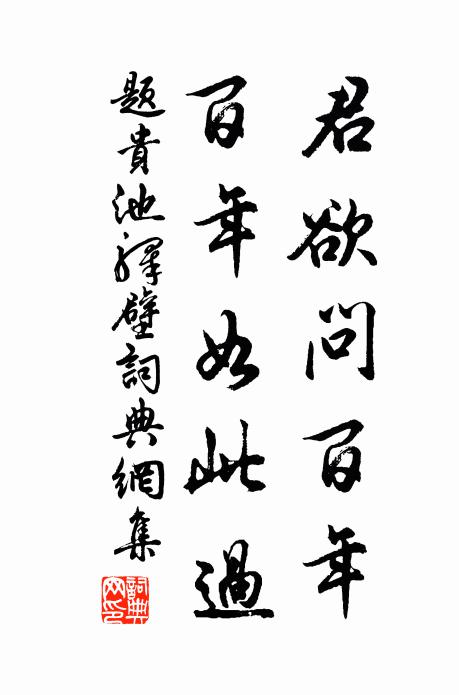 君欲问百年
百年如此過
題貴池驛壁詞典網集
詞典网印